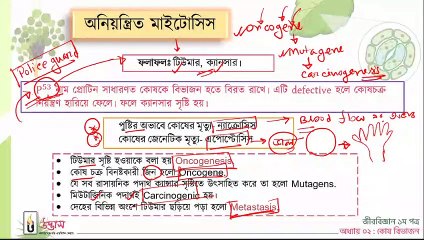 অনিয়ন্ত্রিত মাইটোসিস
Oncogene
Mutagene
Carcinogenesis
Police guard
ফলাফলঃ টিউমার, ক্যানসার।
P53 নাম প্রোটিন সাধারণত কোষকে বিভাজন হতে বিরত রাখে। এটি defective হলে কোষচক্র
নিয়ন্ত্রণ হারিয়ে ফেলে। ফলে ক্যানসার সৃষ্টি হয়।
পুষ্টির অভাবে কোষের মৃত্যু- ন্যাক্রোসিস
Blood flow
কোষের জেনেটিক মৃত্যু- এপোপ্টোসিস
টিউমার সৃষ্টি হওয়াকে বলা হয় Oncogenesis.
কোষ চক্র বিনষ্টকারী জিন হলো Oncogene.
যে সব রাসায়নিক পদার্থ ক্যান্সার সৃষ্টিতে উৎসাহিত করে তা হলো Mutagens.
মিউটাজেনিক পদার্থই Carcinogenic হয়।
দেহের বিভিন্ন অংশে টিউমার ছড়িয়ে পড়া হলো Metastasis.
উদ্ভাস
জীববিজ্ঞান ১ম পত্র
অধ্যায় ০২ : কোষ বিভাজন